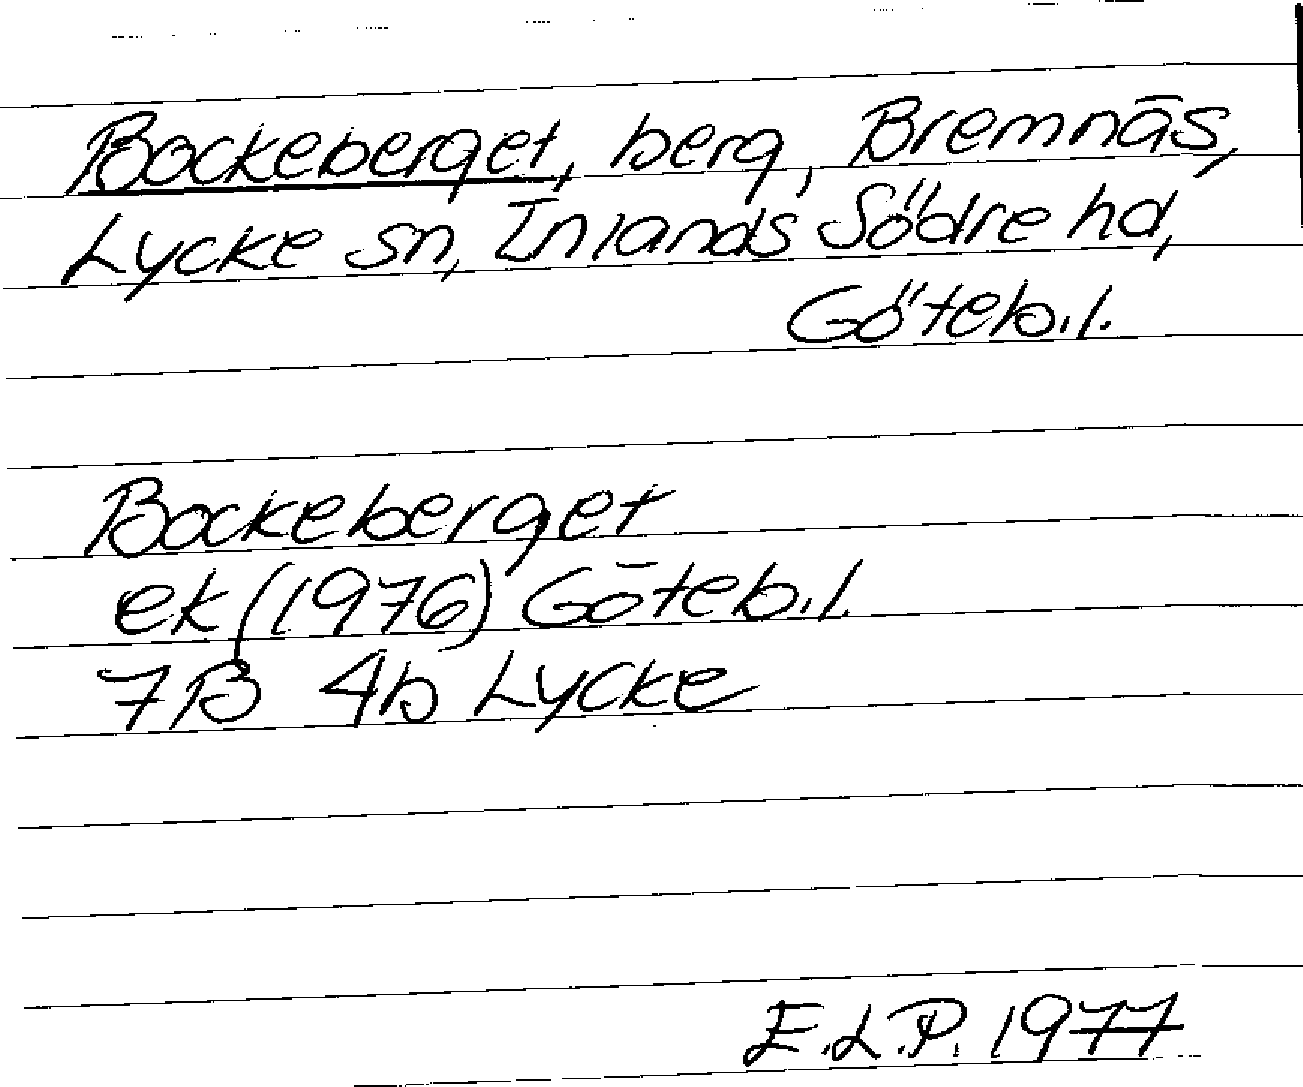 Bockeberget, berg, Bremnäs,
Lycke sn, Inlands Södre hd,
Göteb.l.
Bockeberget
ek (1976) Göteb.l.
7B 4b Lycke
E.L.P. 1977